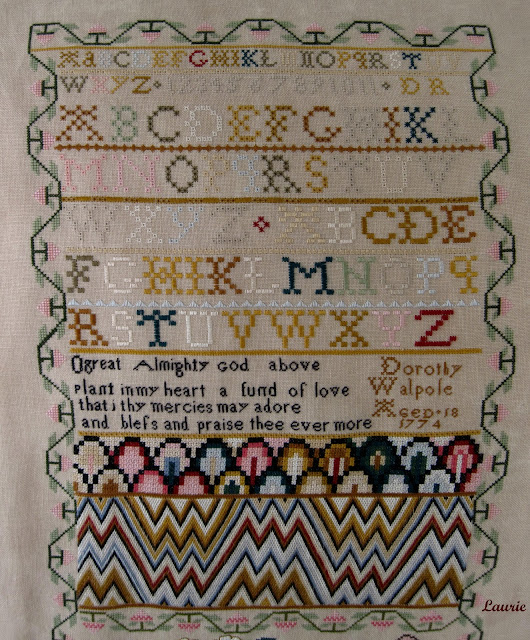 AaBCDEFGHIKL NOPQRST
WXYZ DR
ABCDEFGHIKL
MNOPQRSTUV
WXYZ ABCDE
FGHIKLMNOPq
RSTUVWXYZ
O great Almighty God above
plant in my heart a fund of love
that i thy mercies may adore
and blefs and praise thee ever more
Dorothy
Walpole
Aged 18
1774
Laurie